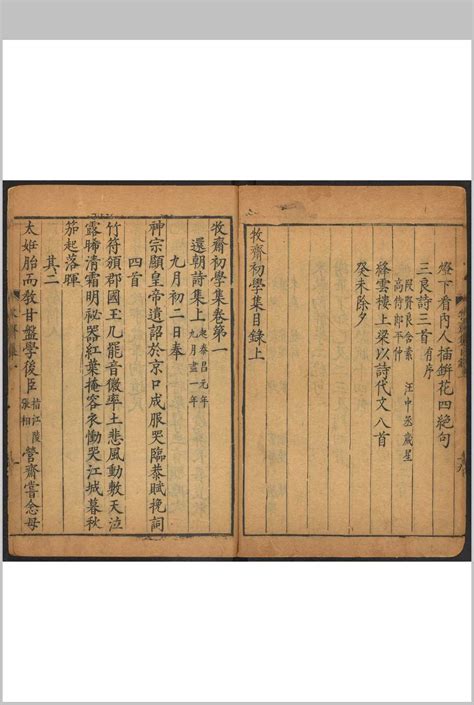 燈下看內人插缾花四絶句
三良詩三首有序
段賢良含素 汪中丞歲星
高待郎平仲
絳雲樓上梁以詩代文八首
癸未除夕
牧齋初學集目錄上
牧齋初學集卷第一
還朝詩集上起泰昌元年九月盡一年
九月初二日奉
神宗顯皇帝遺詔於京口成服哭臨恭賦挽詞
四首
竹符頒郡國玉几罷音徽率土悲風動敷天泣
露晞清霜明祕器紅葉掩容衣慟哭江城暮秋
笳起落暉
其二
太姙胎而敎甘盤學後臣指江陵張相營齋嘗念母